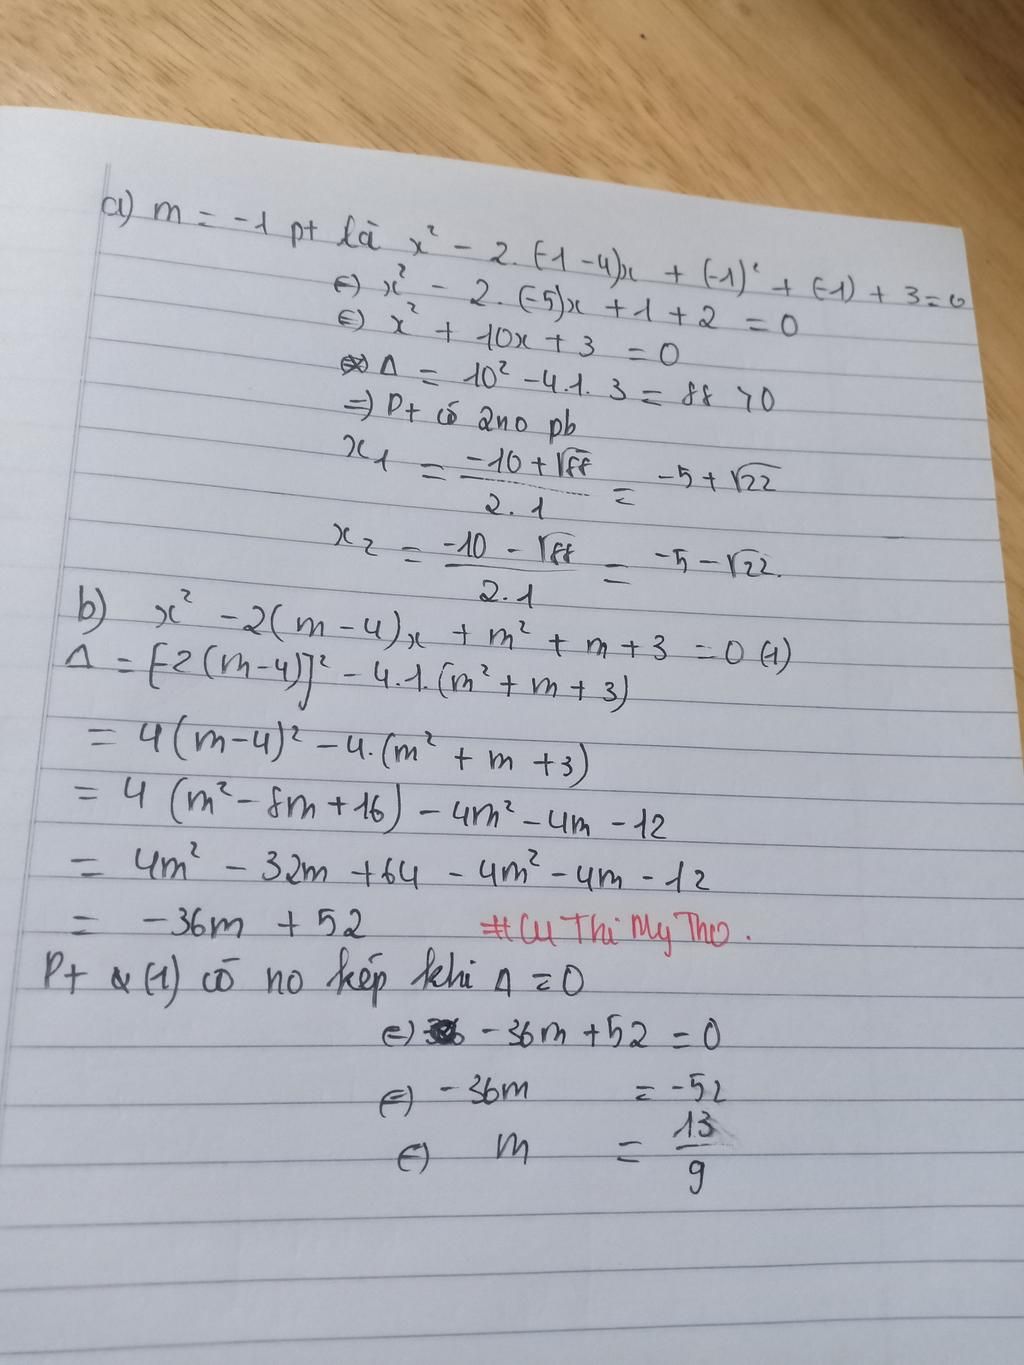 a) m = -1 pt là x² - 2.(-1-4)x + (-1)² + (-1) + 3 = 0
⇔ x² - 2.(-5)x + 1 + 2 = 0
⇔ x² + 10x + 3 = 0
Δ = 10² - 4.1.3 = 88 > 0
⇒ Pt có 2no pb
x₁ = (-10 + √88)/(2.1) = -5 + √22
x₂ = (-10 - √88)/(2.1) = -5 - √22.
b) x² - 2(m-4)x + m² + m + 3 = 0 (1)
Δ = [-2(m-4)]² - 4.1.(m² + m + 3)
= 4(m-4)² - 4.(m² + m + 3)
= 4 (m² - 8m + 16) - 4m² - 4m - 12
= 4m² - 32m + 64 - 4m² - 4m - 12
= -36m + 52 #Cu Thi My Tho.
Pt (1) có no kép khi Δ = 0
⇔ -36m + 52 = 0
⇔ -36m = -52
⇔ m = 13/9